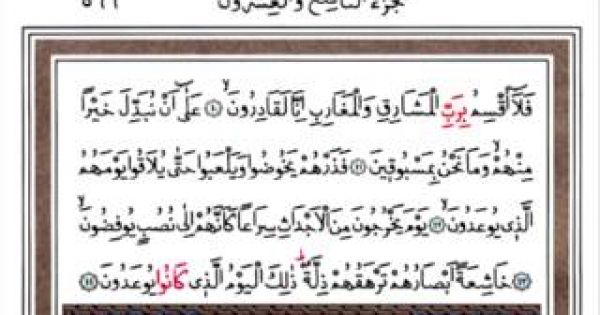 الجزء التاسع والعشرون
فَلَٓا اُقْسِمُ بِرَبِّ الْمَشَارِقِ وَالْمَغَارِبِ اِنَّا لَقَادِرُونَۙ ﴿٤٠﴾ عَلٰٓى اَنْ نُبَدِّلَ خَيْرًا
مِنْهُمْۙ وَمَا نَحْنُ بِمَسْبُوقٖينَ ﴿٤١﴾ فَذَرْهُمْ يَخُوضُوا وَيَلْعَبُوا حَتّٰى يُلَاقُوا يَوْمَهُمُ
الَّذٖي يُوعَدُونَۙ ﴿٤٢﴾ يَوْمَ يَخْرُجُونَ مِنَ الْاَجْدَاثِ سِرَاعًا كَاَنَّهُمْ اِلٰى نُصُبٍ يُوفِضُونَۙ
﴿٤٣﴾ خَاشِعَةً اَبْصَارُهُمْ تَرْهَقُهُمْ ذِلَّةٌۜ ذٰلِكَ الْيَوْمُ الَّذٖي كَانُوا يُوعَدُونَ ﴿٤٤﴾